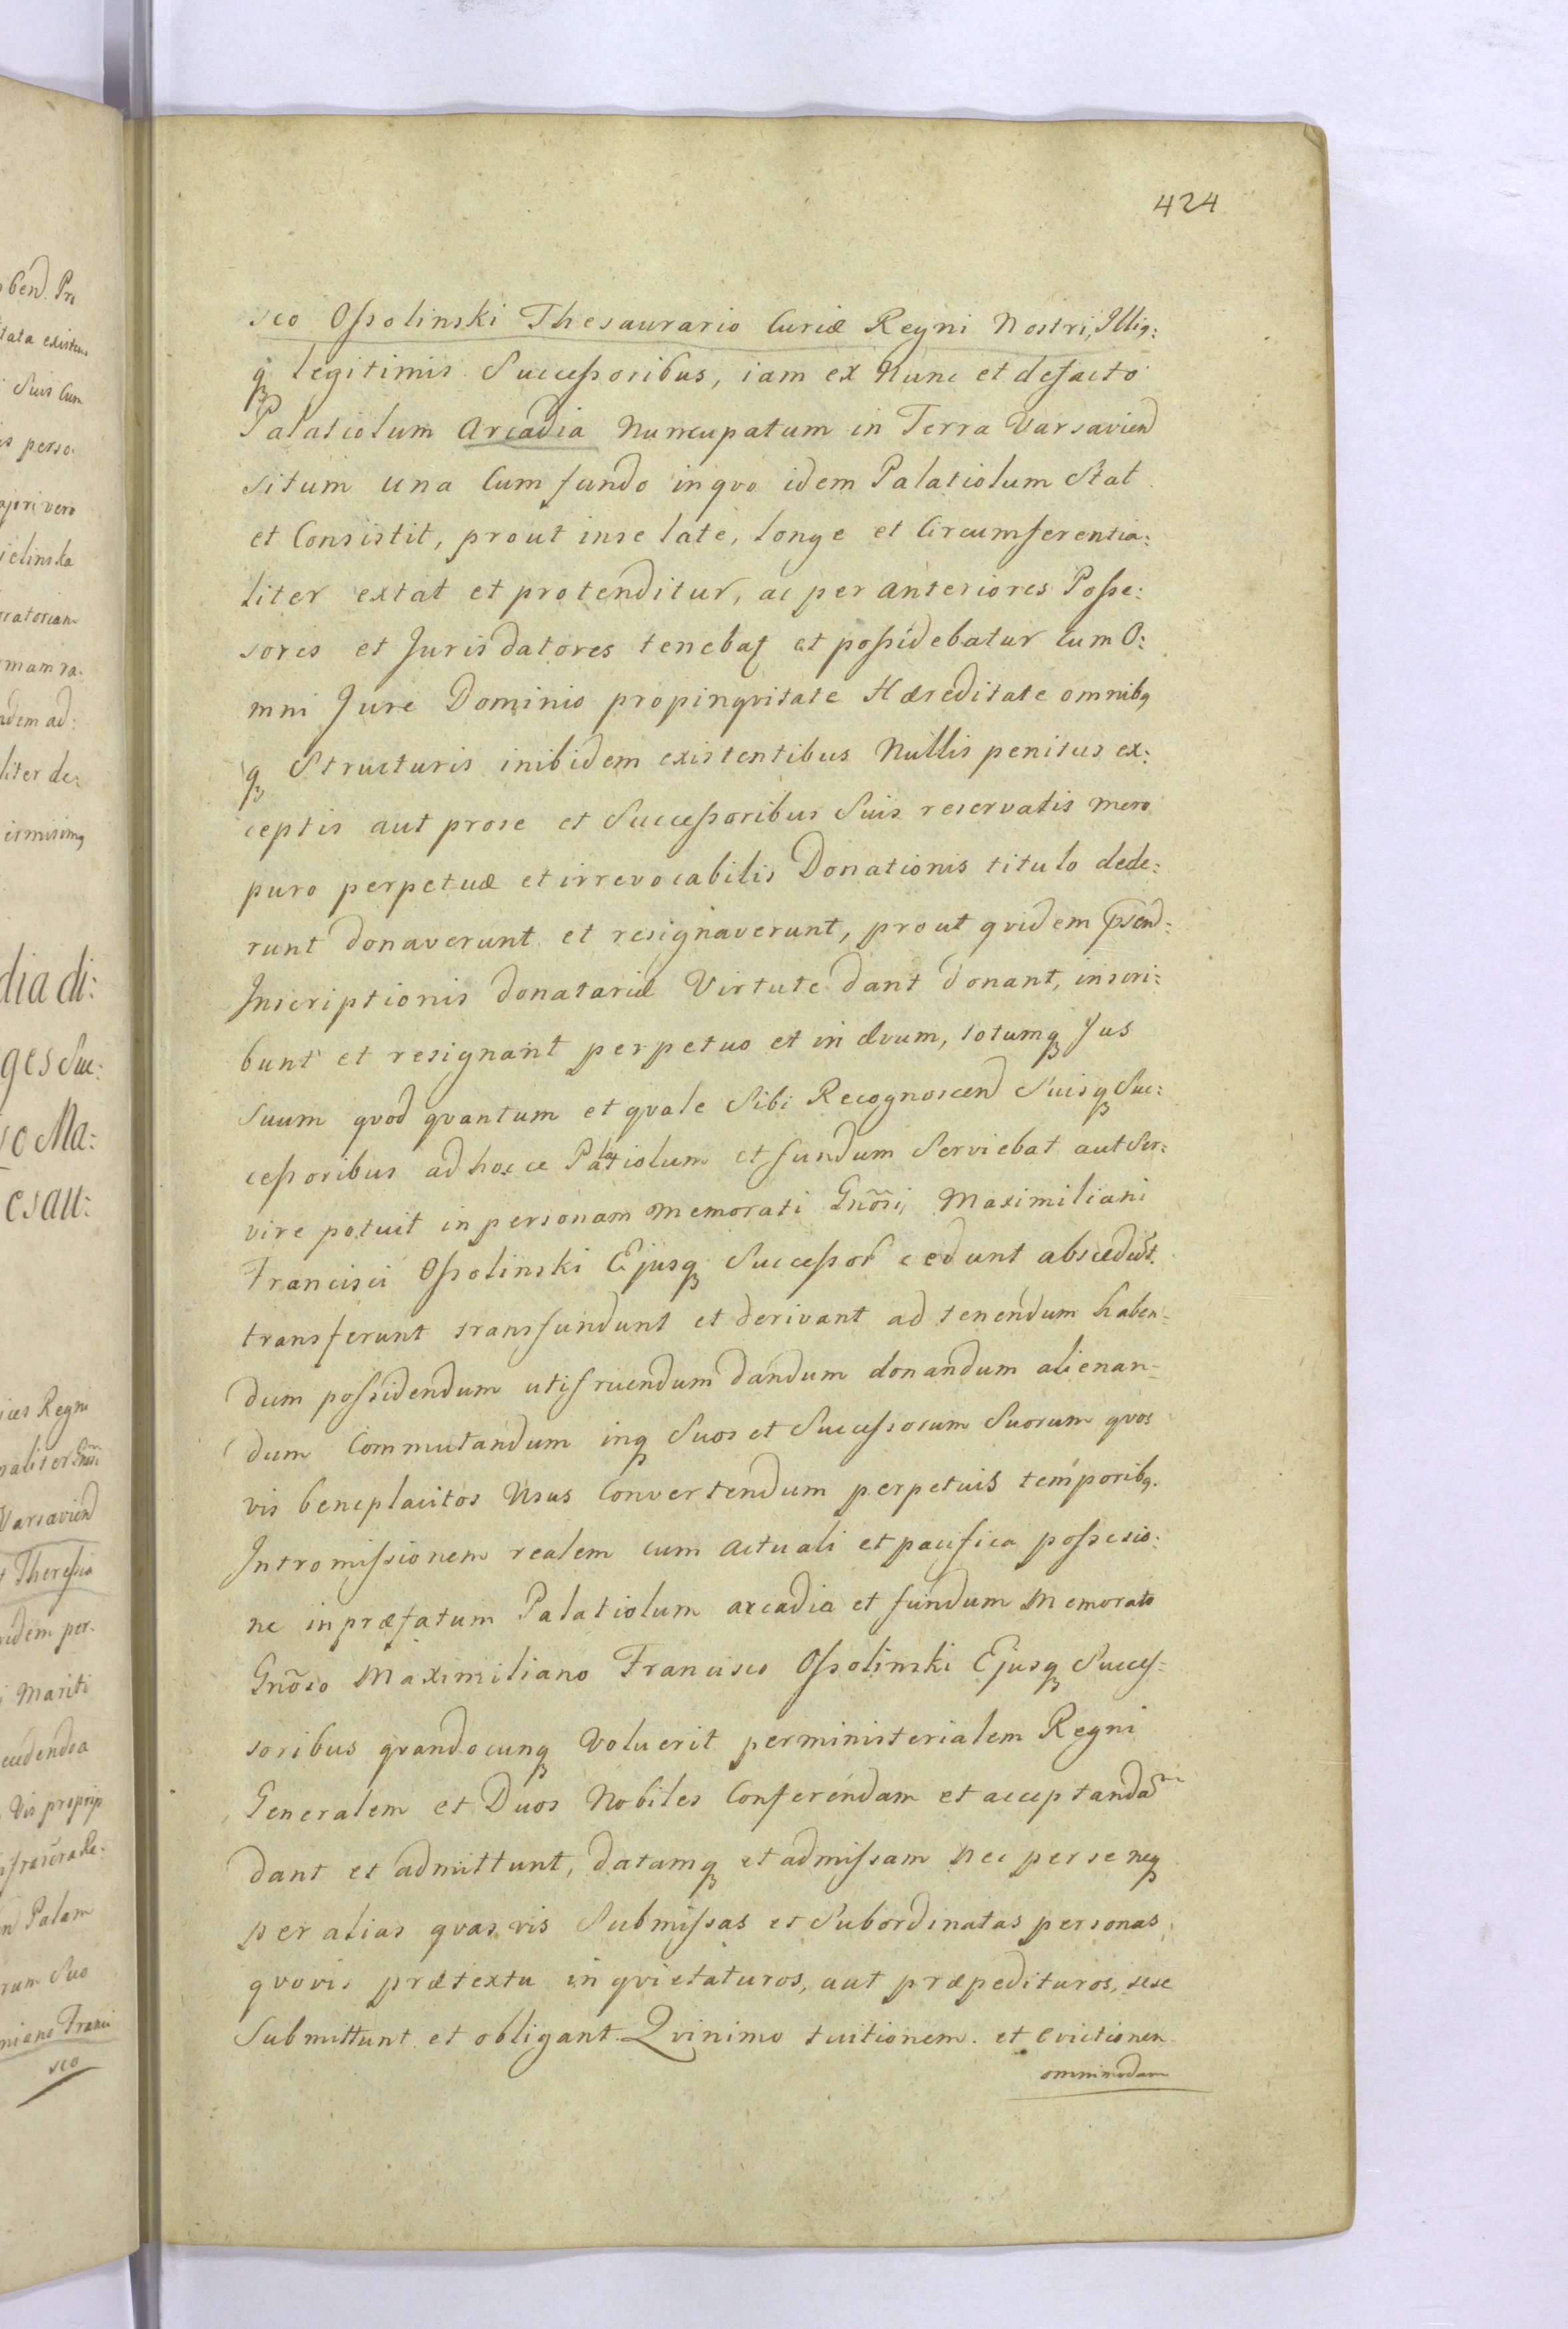 424
sco Ossolinski Thesaurario Curiæ Regni Nostri, Illiq:
q legitimis Successoribus, iam ex Nunc et defacto
Palatiolum Arcadia Nuncupatum in Terra Varsaviend
situm una Cum fundo inqvo idem Palatiolum Stat
et Consistit, prout inse late, longe et Circumferentia:
liter extat et protenditur, ac per anteriores Posse:
sores et Juris datores tenebat et possidebatur cum O:
mni Jure Dominio propinqvitate Hæreditate omnibq
q Structuris inibidem existentibus Nullis penitus ex:
ceptis aut prose et Successoribus Suis reservatis mero
puro perpetuæ et irrevocabilis Donationis titulo dede:
runt donaverunt et resignaverunt, prout qvidem Psend:
Inscriptionis donatariæ Virtute dant donant, inscri:
bunt et resignant perpetuo et in ævum, totumq Jus
Suum qvod qvantum et qvale Sibi Recognoscend Suisq Suc:
cessoribus ad hocce Palatiolum et fundum Serviebat aut Ser:
vire potuit in personam Memorati Gnõsi, Maximiliani
Francisci Ossolinski Ejusq Successor cedunt abscedut.
transferunt transfundunt et derivant ad tenendum haben=
dum possidendum utifruendum dandum donandum alienan=
dum Commutandum inq Suos et Successorum Suorum qvos
vis beneplacitos Usus Convertendum perpetuis temporibq.
Intromissionem realem cum actuali et pacifica possesio:
ne in præfatum Palatiolum arcadia et fundum Memorato
Gnõso Maximiliano Francisco Ossolinski Ejusq Succes=
soribus qvandocunq Voluerit perministerialem Regni
Generalem et Duos Nobiles Conferendam et acceptandam
dant et admittunt, datamq et admissam Nec per se neq
per alias qvas vis Submissas et Subordinatas personas,
qvovis prætextu inqvietaturos, aut præpedituros, sese
Submittunt et obligant. Qvinimo tuitionem. et Evictionem
omnimodam